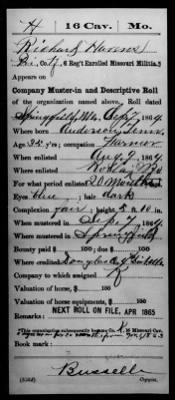 H 16 Cav. Mo.
Richard
Pri, Co. 6 Reg't Enrolled Missouri Militia.
Appears on
Company Muster-in and Descriptive Roll
of the organization named above. Roll dated
Springfield, Mo. Sept 7, 1864.
Where born Anderson, Tenn.
Age 34 y'rs; occupation Farmer
When enlisted Aug. 9, 1864.
Where enlisted Mo.
For what period enlisted 20 months
Eyes blue; hair dark
Complexion fair; ft. 10 in.
When mustered in Sept 7, 1864.
Where mustered in Springfield
Bounty paid $ 100; due $ 100
Where credited
Company to which assigned K
Valuation of horse, $ 100
Valuation of horse equipments, $ 100
Remarks: NEXT ROLL ON FILE, APR 1865
*This organization subsequently became Co. 16 Missouri Cav.
Book mark:
Russell
Copyist.